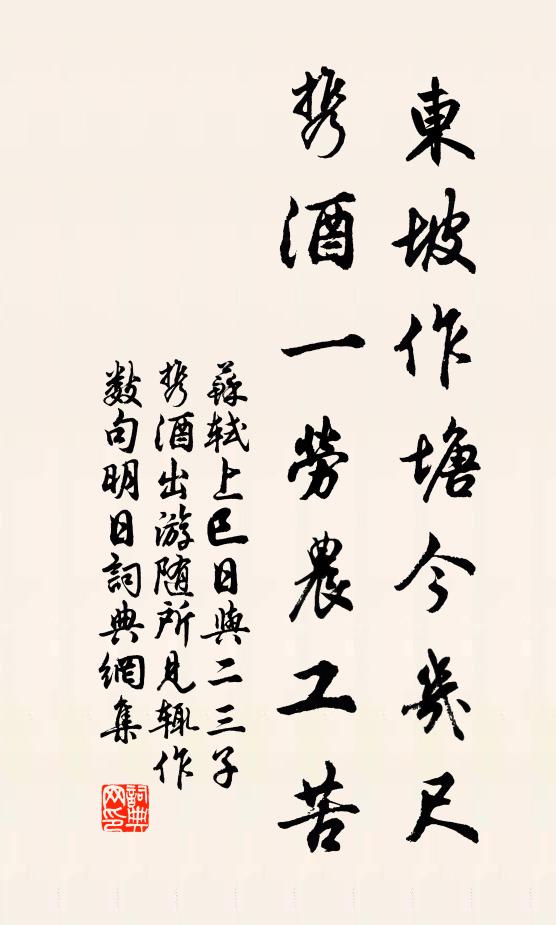 東坡作塘今幾尺
携酒一勞農工苦
蘇軾上巳日與二三子
携酒出游随所見輒作
數句明日詞典網集
詞典网印